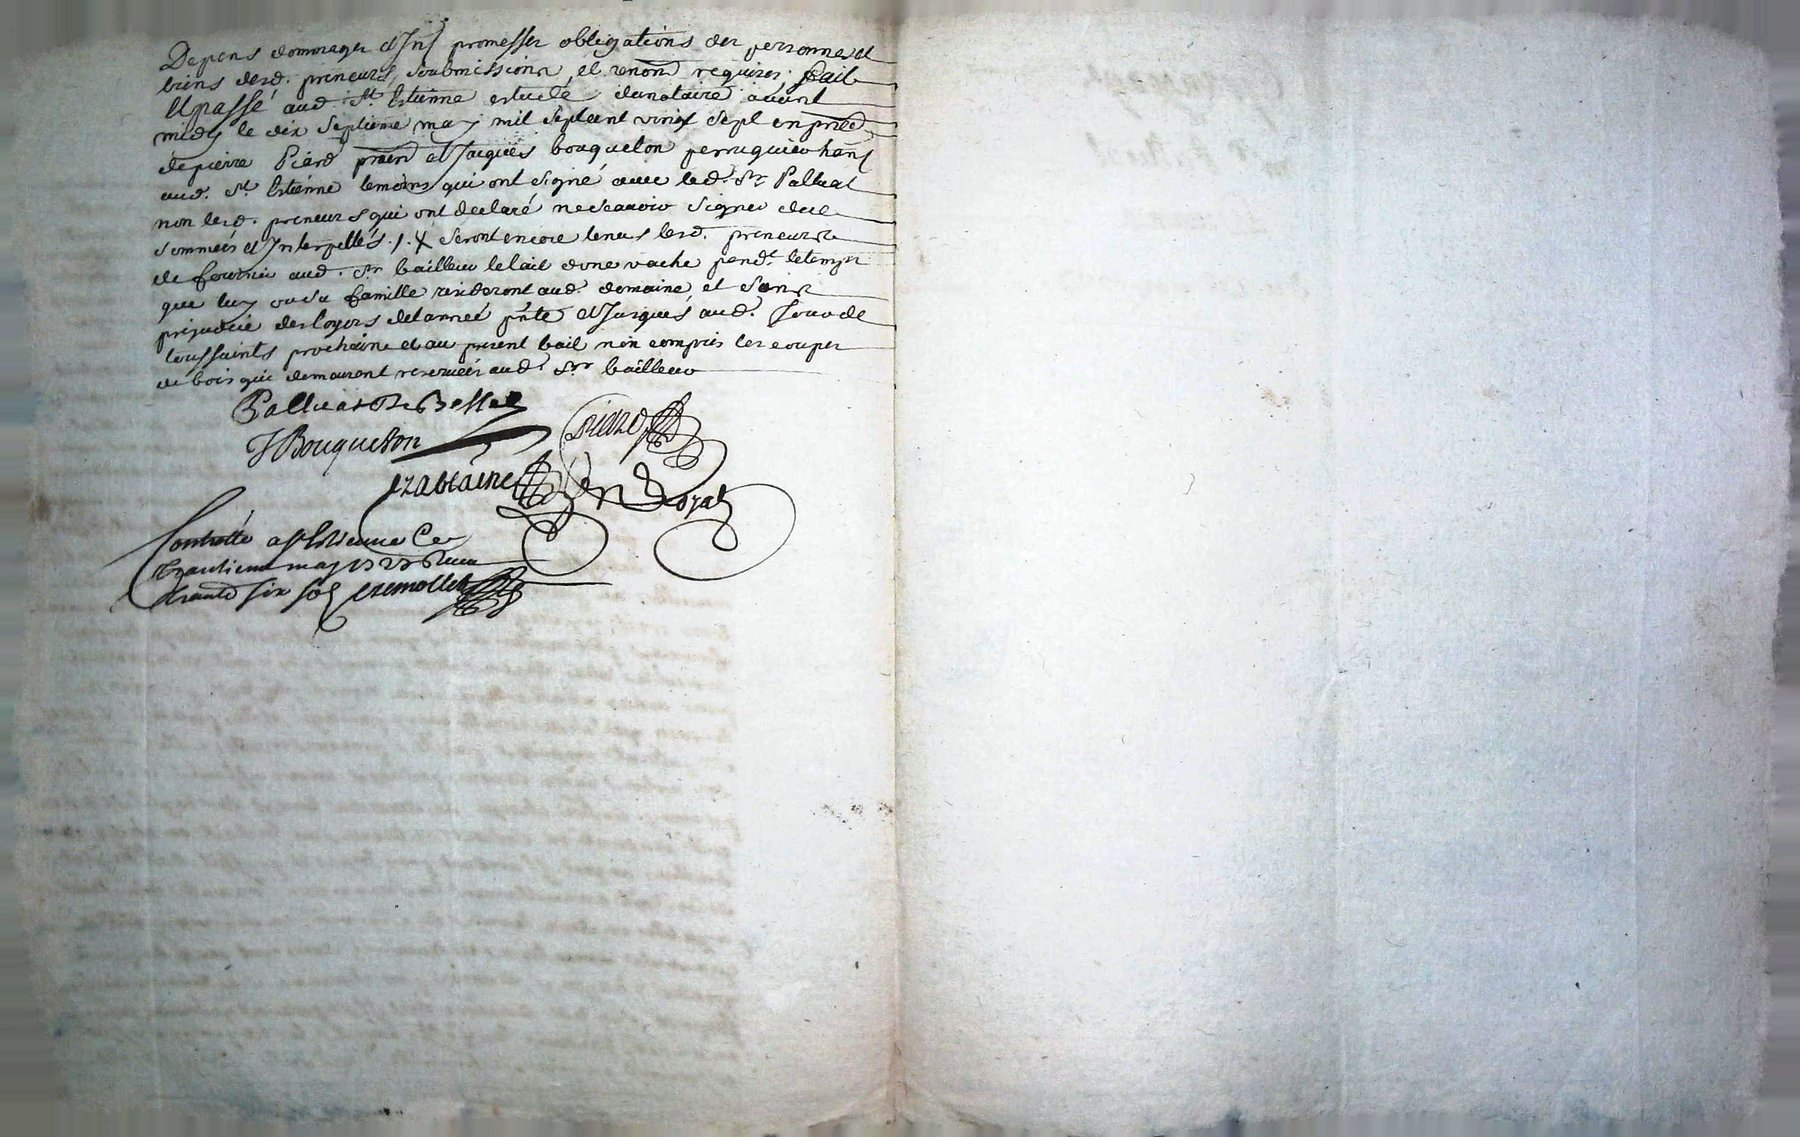 Depens dommages et Int promesses obligations des personnes et
biens desd. preneurs, soubmissions, et renon requises, fait
et passé aud. St. Estienne estude dunotaire avant
midy le dix septieme may mil sept cent vingt sept en pnce
de pierre Piard praen et Jacques bouqueton perruquier hant
aud. St. Estienne temoins qui ont signé avec led. Sr Palluat
non lesd. preneurs qui ont declaré ne scavoir signer de ce
sommés et Interpellés ./. X seront encore tenus lesd. preneurs
de fournir aud. Sr bailleur le lait dune vache pendt. le temps
que luy ou sa famille resideront aud. domaine et sans
prejudice des loyers de lannée pnte et Jusques aud. Jour de
toussaints prochaine et au present bail non compris les coupes
de bois qui demeurent reservées aud. Sr bailleur
Palluat De Besset
JBouqueton Piard
Dorat
Controllé a St Estienne Ce
may
sols